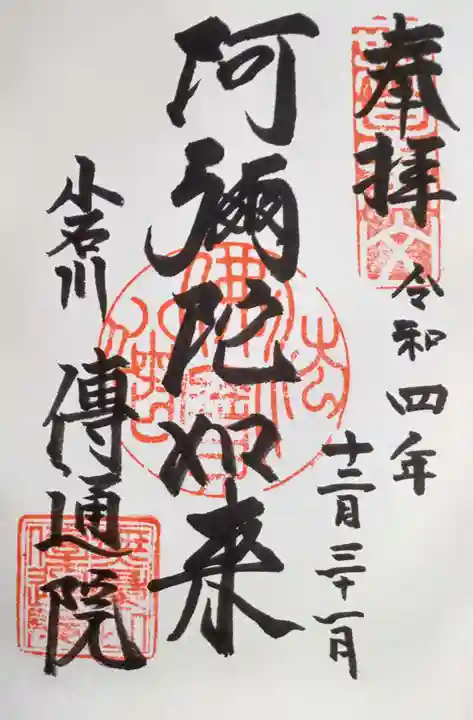 奉拝
令和四年
十二月三十一日
阿彌陀如来
小石川 傳通院